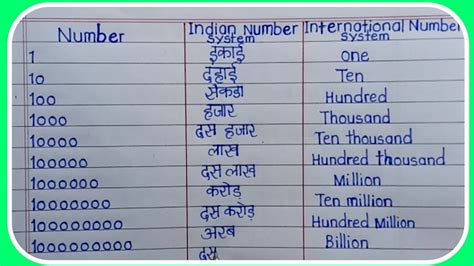 Number Indian Number System International Number System
1 इकाई One
10 दहाई Ten
100 सैकडा Hundred
1000 हजार Thousand
10000 दस हजार Ten thousand
100000 लाख Hundred thousand
1000000 दस लाख Million
10000000 करोड़ Ten million
100000000 दस करोड़ Hundred Million
1000000000 अरब Billion
दस